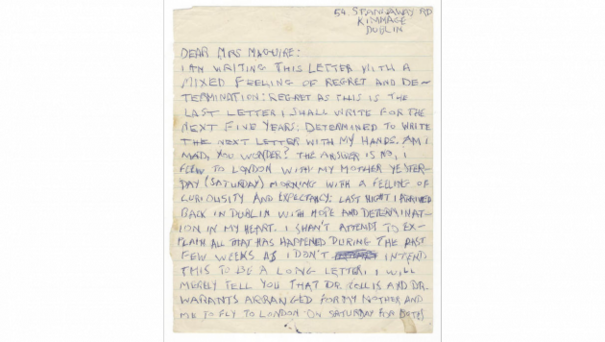 54 STANNAWAY RD
KIMMAGE
DUBLIN
DEAR MRS MAGUIRE:
I AM WRITING THIS LETTER WITH A
MIXED FEELING OF REGRET AND DE-
TERMINATION: REGRET AS THIS IS THE
LAST LETTER I SHALL WRITE FOR THE
NEXT FIVE YEARS: DETERMINED TO WRITE
THE NEXT LETTER WITH MY HANDS. AM I
MAD, YOU WONDER? THE ANSWER IS NO. I
FLEW TO LONDON WITH MY MOTHER YESTER-
DAY (SATURDAY) MORNING WITH A FEELING OF
CURIOUSITY AND EXPECTANCY: LAST NIGHT I ARRIVED
BACK IN DUBLIN WITH HOPE AND DETERMINAT-
ION IN MY HEART. I SHAN'T ATTEMPT TO EX-
PLAIN ALL THAT HAS HAPPENED DURING THE PAST
FEW WEEKS AS I DON'T INTEND
THIS TO BE A LONG LETTER. I WILL
MERELY TELL YOU THAT DR. COLLIS AND DR.
WARANTS ARRANGED FOR MY MOTHER AND
ME TO FLY TO LONDON ON SATURDAY FOR